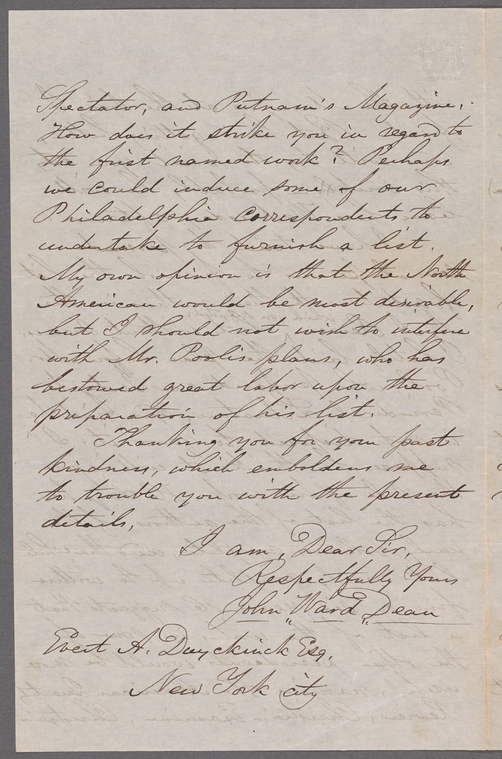 Spectator, and Putnam's Magazine.
How does it strike you in regard to
the first named work? Perhaps
we could induce some of our
Philadelphia correspondents to
undertake to furnish a list.
My own opinion is that the North
American would be most desirable,
but I should not wish to interfere
with Mr. Poole's plans, who has
bestowed great labor upon the
preparation of his list.
Thanking you for your past
kindness, which emboldens me
to trouble you with the present
details,
I am, Dear Sir,
Respectfully Yours
John Ward Dean
Evert A. Duyckinck Esq.
New York city